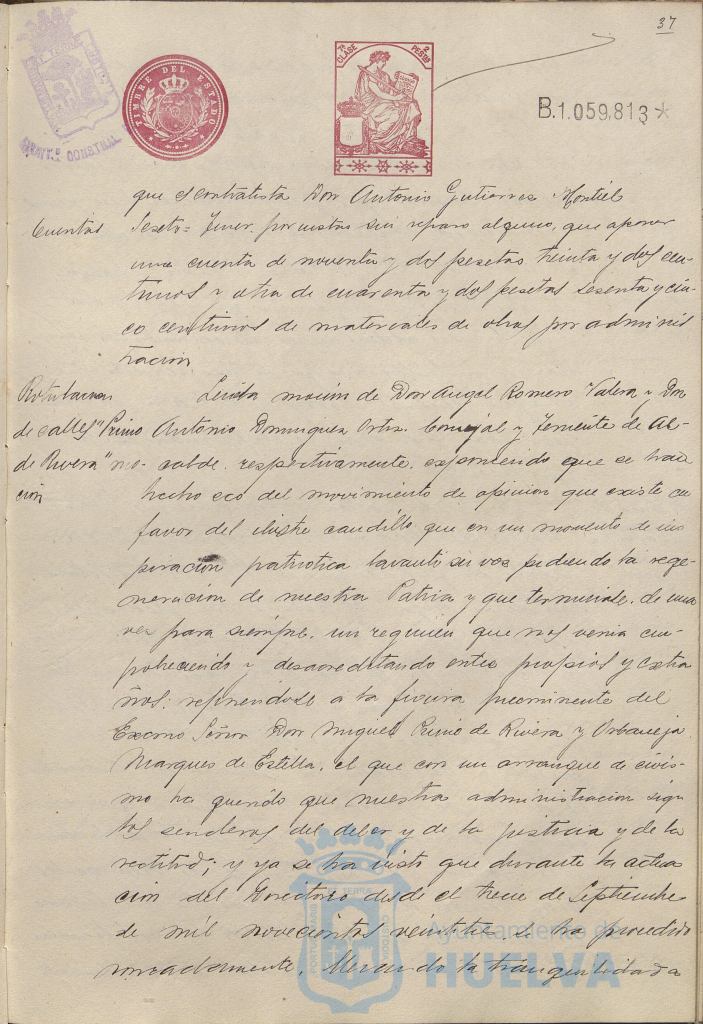 37
TIMBRE DEL ESTADO
7ª CLASE 2 PESTAS
B.1.059.813*
que el contratista Don Antonio Gutierrez Montiel
Cuentas
por vistas sin reparo alguno, que
una cuenta de noventa y dos pesetas treinta y dos cen-
timos y otra de cuarenta y dos pesetas sesenta y cin-
co centimos de materiales de obras por adminis
tracion
Rotulacion
de calles "Primo
de Rivera" mo-
cion
Leida mocion de Don Angel Romero Valera y Don
Antonio Dominguez Ortiz. Concejal y Teniente de Al-
calde. respectivamente. exponiendo que se han
hecho eco del movimiento de opinion que existe en
favor del ilustre caudillo que en un momento de ins
piracion patriotica levantó su voz pidiendo la rege-
neracion de nuestra Patria y que terminase. de una
vez para siempre. un regimen que nos venia em-
pobreciendo y desacreditando entre propios y extra
ños: refiriendose a la figura preeminente del
Excmo Señor Don Miguel Primo de Rivera y Orbaneja
Marques de Estella. el que con un arranque de civis-
mo ha querido que nuestra administracion siga
los senderos del deber y de la justicia y de la
rectitud; y ya se ha visto que durante la actua
cion del Directorio desde el trece de Septiembre
de mil novecientos veintitres. se ha procedido
la tranquilidad a
Ayuntamiento de
HUELVA